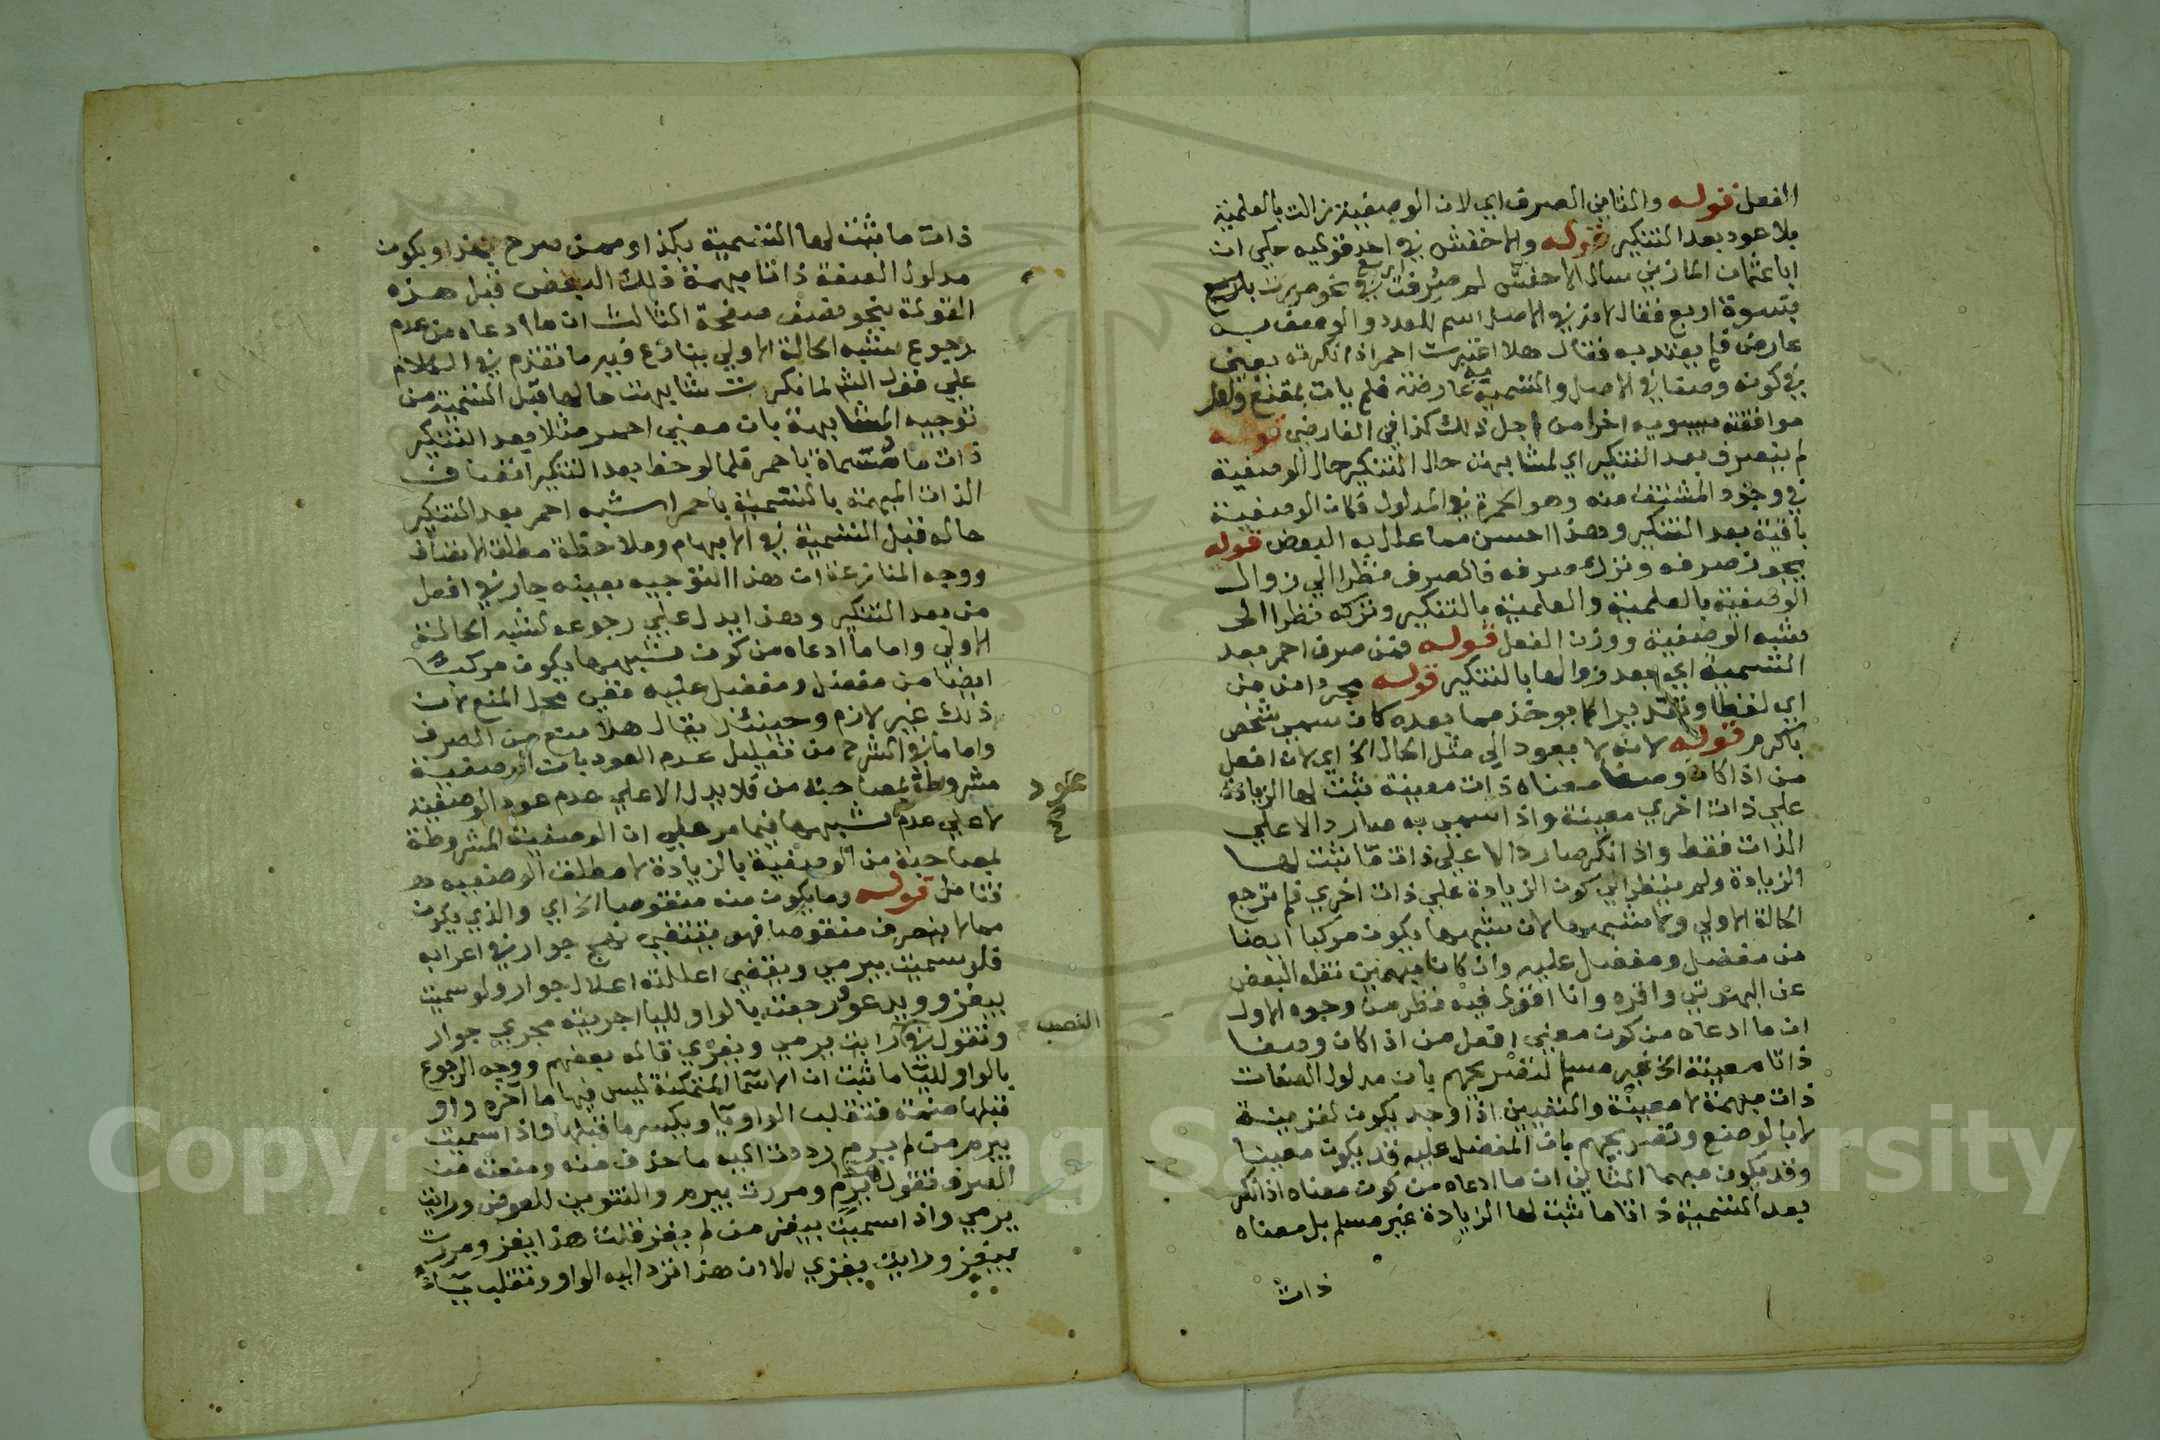 الفعل قوله والثاني الصرف اي لان الوصفية زالت بالعلمية
بلا عود بعد التنكير قوله والاخفش في احد قوليه حكي ان
ابا عثمان المازني سال الاخفش لم صرفت اربع في نحو مررت
بنسوة اربع فقال لانه في الاصل اسم للعدد والوصف به
عارض فلم يعتد به فقال هلا اعتبرت احمر اذا نكرته يعني
في كونه وصفا في الاصل والتسمية عارضة فلم يات بمقنع ولعل
موافقة سيبويه اخرا من اجل ذلك كذا في الفارضي قوله
لم ينصرف بعد التنكير اي لمشابهته حال التنكير حال الوصفية
في وجود المشتق منه وهو الحمرة في المدلول فكان الوصفية
باقية بعد التنكير وهذا احسن مما علل به البعض قوله
يجوز صرفه وترك صرفه فالصرف نظرا الي زوال
الوصفية بالعلمية والعلمية بالتنكير وتركه نظرا الى
شبه الوصفية ووزن الفعل قوله فمن صرف احمر بعد
التسمية اي بعد زوالها بالتنكير قوله مجردا من من
اي لفظا وتقديرا كما يوخذ مما بعده كان سمي شخص
باكرم قوله لانه لا يعود الى مثل الحال الخ اي لان افعل
من اذا كان وصفا معناه ذات معينة ثبت لها الزيادة
علي ذات اخري معينة واذا سمي به صار دالا علي
الذات فقط واذا نكر صار دالا علي ذات ما ثبت لها
الزيادة ولم ينظر الي كون الزيادة علي ذات اخري فلم ترجع
الحالة الاولي ولا شبهها لان شبهها يكون مركبا ايضا
من مفضل ومفضل عليه وان كانا مبهمين نقله البعض
عن البهوتي واقره وانا اقول فيه نظر من وجوه الاول
ان ما ادعاه من كون معني افعل من اذا كان وصفا
ذاتا معينة الخ غير مسلم لتصريحهم بان مدلول الصفات
ذات مبهمة لا معينة والتعيين اذا وجد يكون لقرينة
لا بالوضع وتصريحهم بان المفضل عليه قد يكون معينا
وقد يكون مبهما الثاني ان ما ادعاه من كون معناه اذا نكر
بعد التسمية ذاتا ما ثبت لها الزيادة غير مسلم بل معناه
ذات
ذات ما ثبت لها التسمية بكذا
مدلول الصفة ذاتا مبهمة ذلك البعض قبل هذه
القولة بنحو نصف صفحة الثالث ان ما ادعاه من عدم
رجوع شبه الحالة الاولي ينازع فيه ما تقدم في الكلام
علي قول الشم لما نكر شابهت حالها قبل التسمية من
توجيه المشابهة بان معني احمر مثلا بعد التنكير
ذات ما مسماة باحمر فلما لوحظ بعد التنكير اتصاف
الذات المبهمة بالتسمية باحمر اشبه احمر بعد التنكير
حاله قبل التسمية في الابهام وملاحظة مطلق الاتصاف
ووجه المنازعة ان هذا التوجيه بعينه جار في افعل
من بعد التنكير وهذا يدل علي رجوعه لشبه الحالة
الاولي واما ما ادعاه من كون شبهها يكون مركبا
ايضا من مفضل ومفضل عليه ففي محل المنع لان
ذلك غير لازم وحينئذ يقال هلا منع من الصرف
واما ما في الشرح من تعليل عدم العود بان الوصفية
مشروطة بمصاحبة من فلا يدل الا علي عدم عود الوصفية
لا علي عدم عود شبهها فيما مر علي ان الوصفية المشروطة
بمصاحبة من الوصفية بالزيادة لا مطلق الوصفيه
فتامل قوله وما يكون منه منقوصا الخ اي والذي يكون
مما لا ينصرف منقوصا فهو يقتفي نهج جوار في اعرابه
فلو سميت بيرمي ويقضي اعللته اعلال جوار ولو سميت
بيغزو ويدعو ورجعت بالواو لليا اجريته مجري جوار
وتقول في النصب رايت يرمي ويغزي قاله بعضهم ووجه الرجوع
بالواو لليا ما ثبت ان الاسما المتمكنة ليس فيها ما آخره واو
قبلها ضمة فتقلب الواو يا ويكسر ما قبلها واذا سميت
بيرم من لم يرم رددت اليه ما حذف منه ومنعته من
الصرف فتقول هذا يرم ومررت بيرم والتنوين للعوض ورايت
يرمي واذا سميت بيغز من لم يغز قلت هذا يغز ومررت
بيغز ورايت يغزي الا ان هذا ترد اليه الواو وتقلب ياء
عود
صح
النصب
Copyright © King Saud University
1957